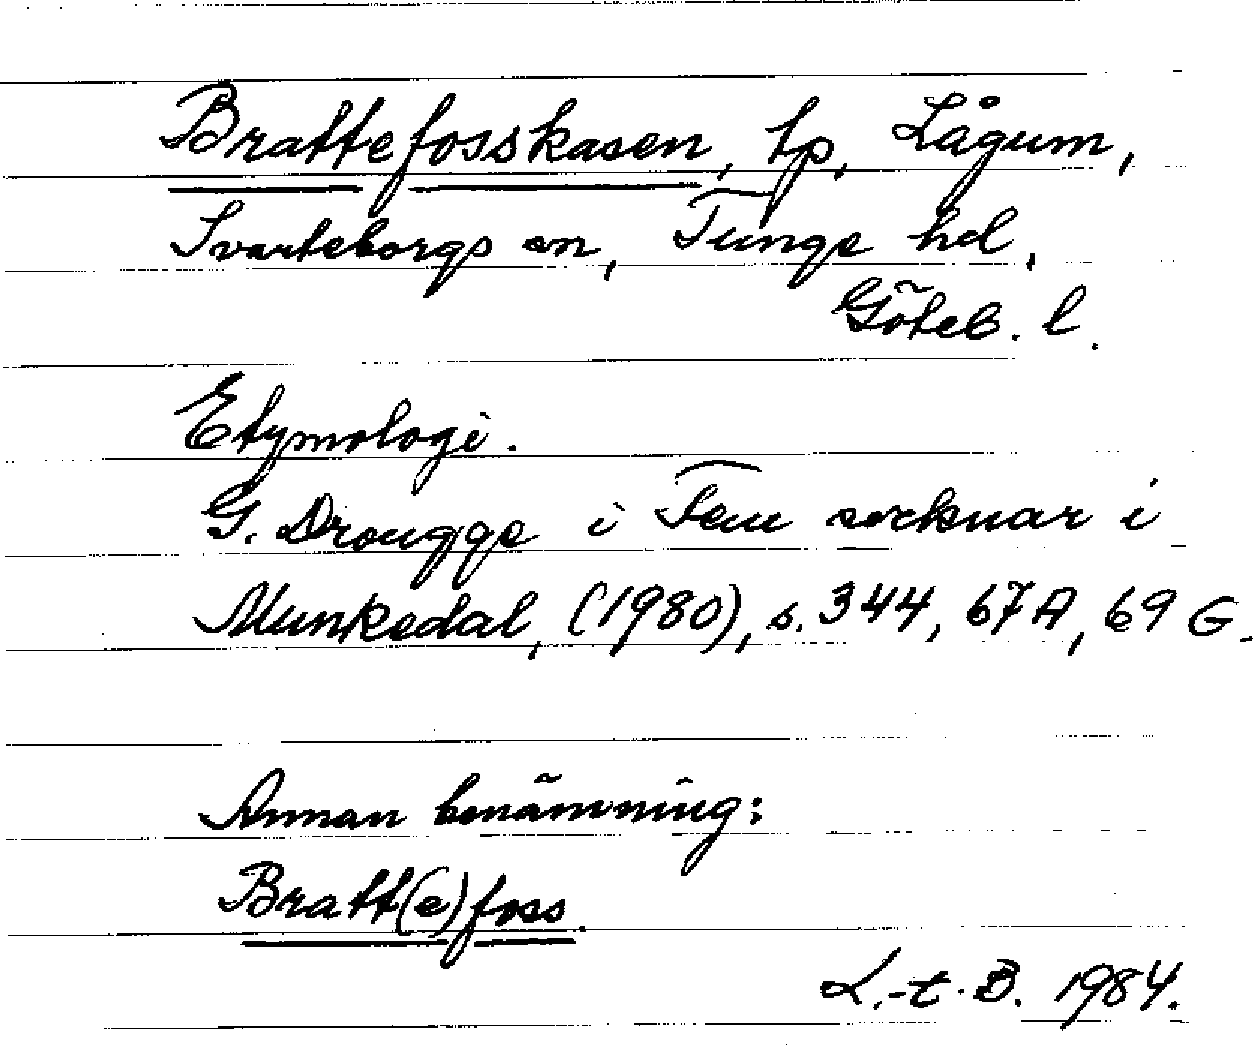 Brattefosskasen, tp, Lågum,
Svarteborgs sn, Tunge hd,
Göteb. l.
Etymologi.
G. Drougge i Fem socknar i
Munkedal, (1980), s. 344, 67A, 69 G.
Annan benämning:
Bratt(e)foss.
L.-t. B. 1984.